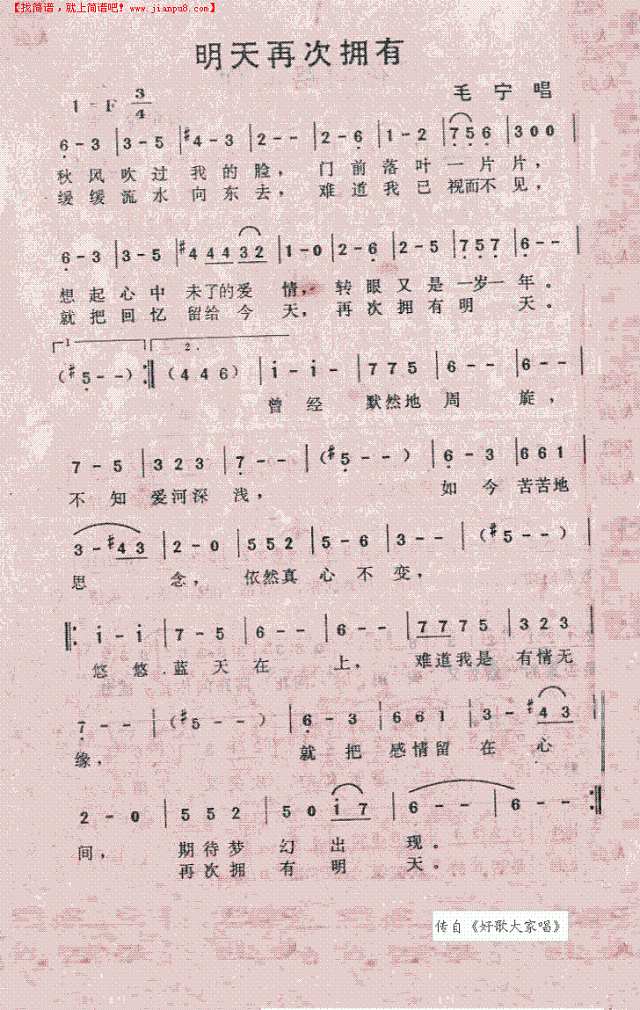 【找简谱，就上简谱吧！www.jianpu8.com】
明天再次拥有
1=F 3/4
毛宁唱
6-3 | 3-5 | #4-3 | 2-- | 2-6 | 1-2 | 756 | 300 |
秋风吹过我的脸，门前落叶一片片，
缓缓流水向东去，难道我已视而不见，
6-3 | 3-5 | #4 44 32 | 1-0 | 2-6 | 2-5 | 757 | 6-- |
想起心中未了的爱情，转眼又是一岁一年。
就把回忆留给今天，再次拥有明天。
1 2.
(#5--) :‖ (446) | i-i- | 775 | 6-- | 6-- |
曾经默然地周旋，
7-5 | 323 | 7-- | (#5--) | 6-3 | 661 |
不知爱河深浅，如今苦苦地
3-#43 | 2-0 | 552 | 5-6 | 3-- | (#5--) |
思念，依然真心不变，
‖: i-i- | 7-5 | 6-- | 6-- | 7775 | 323 |
悠悠蓝天在上，难道我是有情无
7-- | (#5--) | 6-3 | 661 | 3-#43 |
缘，就把感情留在心
2-0 | 552 | 50i7 | 6-- | 6-- :‖
间，期待梦幻出现。
再次拥有明天。
传自《好歌大家唱》